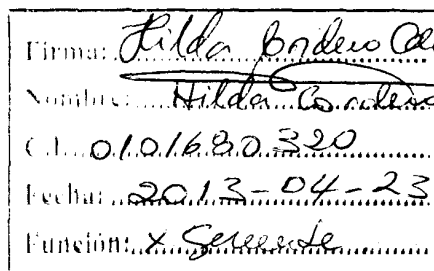 Firma: Hilda Cordero
Nombre: Hilda Cordero
C.I. 0101680320
Fecha: 2013-04-23
Función: x Gerente